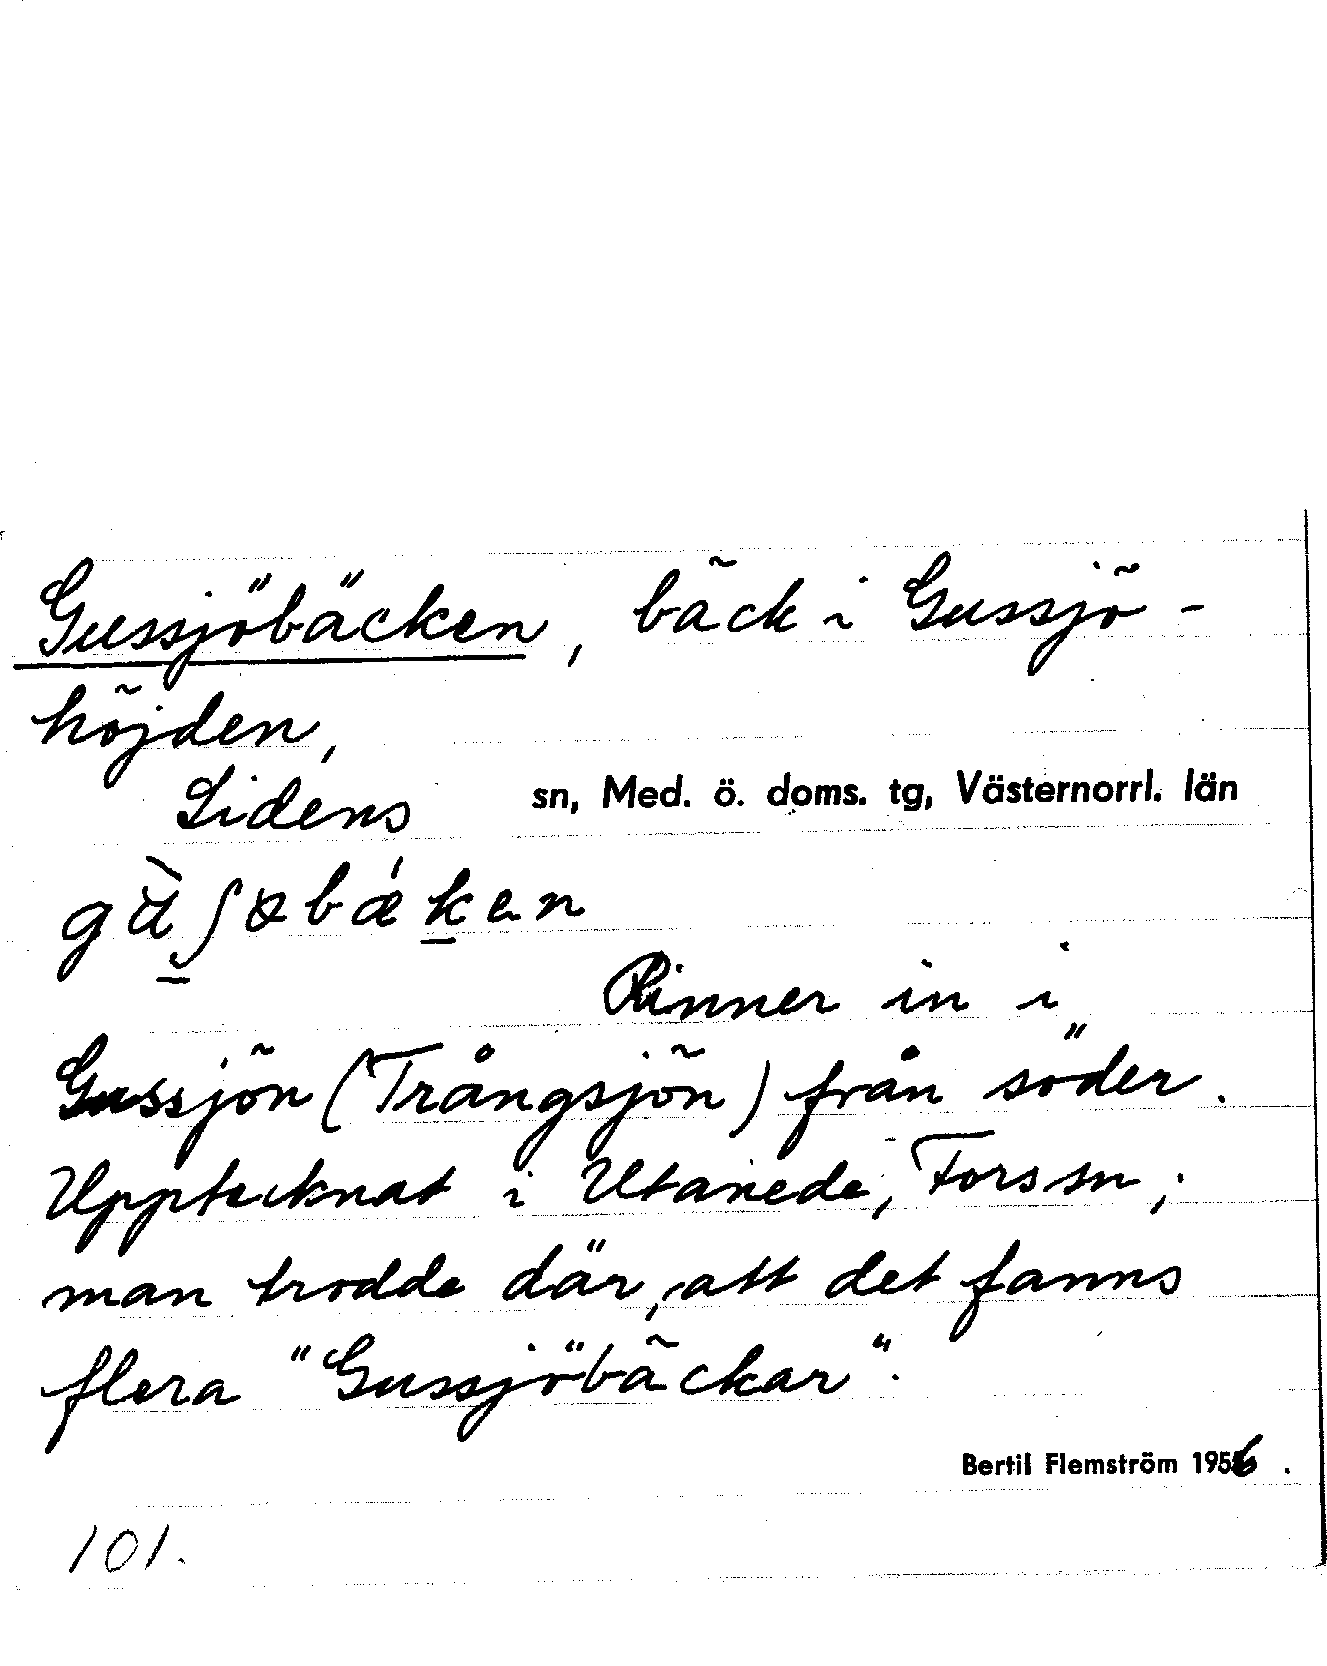 Gussjöbäcken, bäck i Gussjö-
höjden,
Lidens sn, Med. ö. doms. tg, Västernorrl. län
Rinner in i
Gussjön (Trångsjön) från söder.
Upptecknat i Utanede, Fors sn;
man trodde där, att det fanns
flera "Gussjöbäckar".
Bertil Flemström 1956.
101.